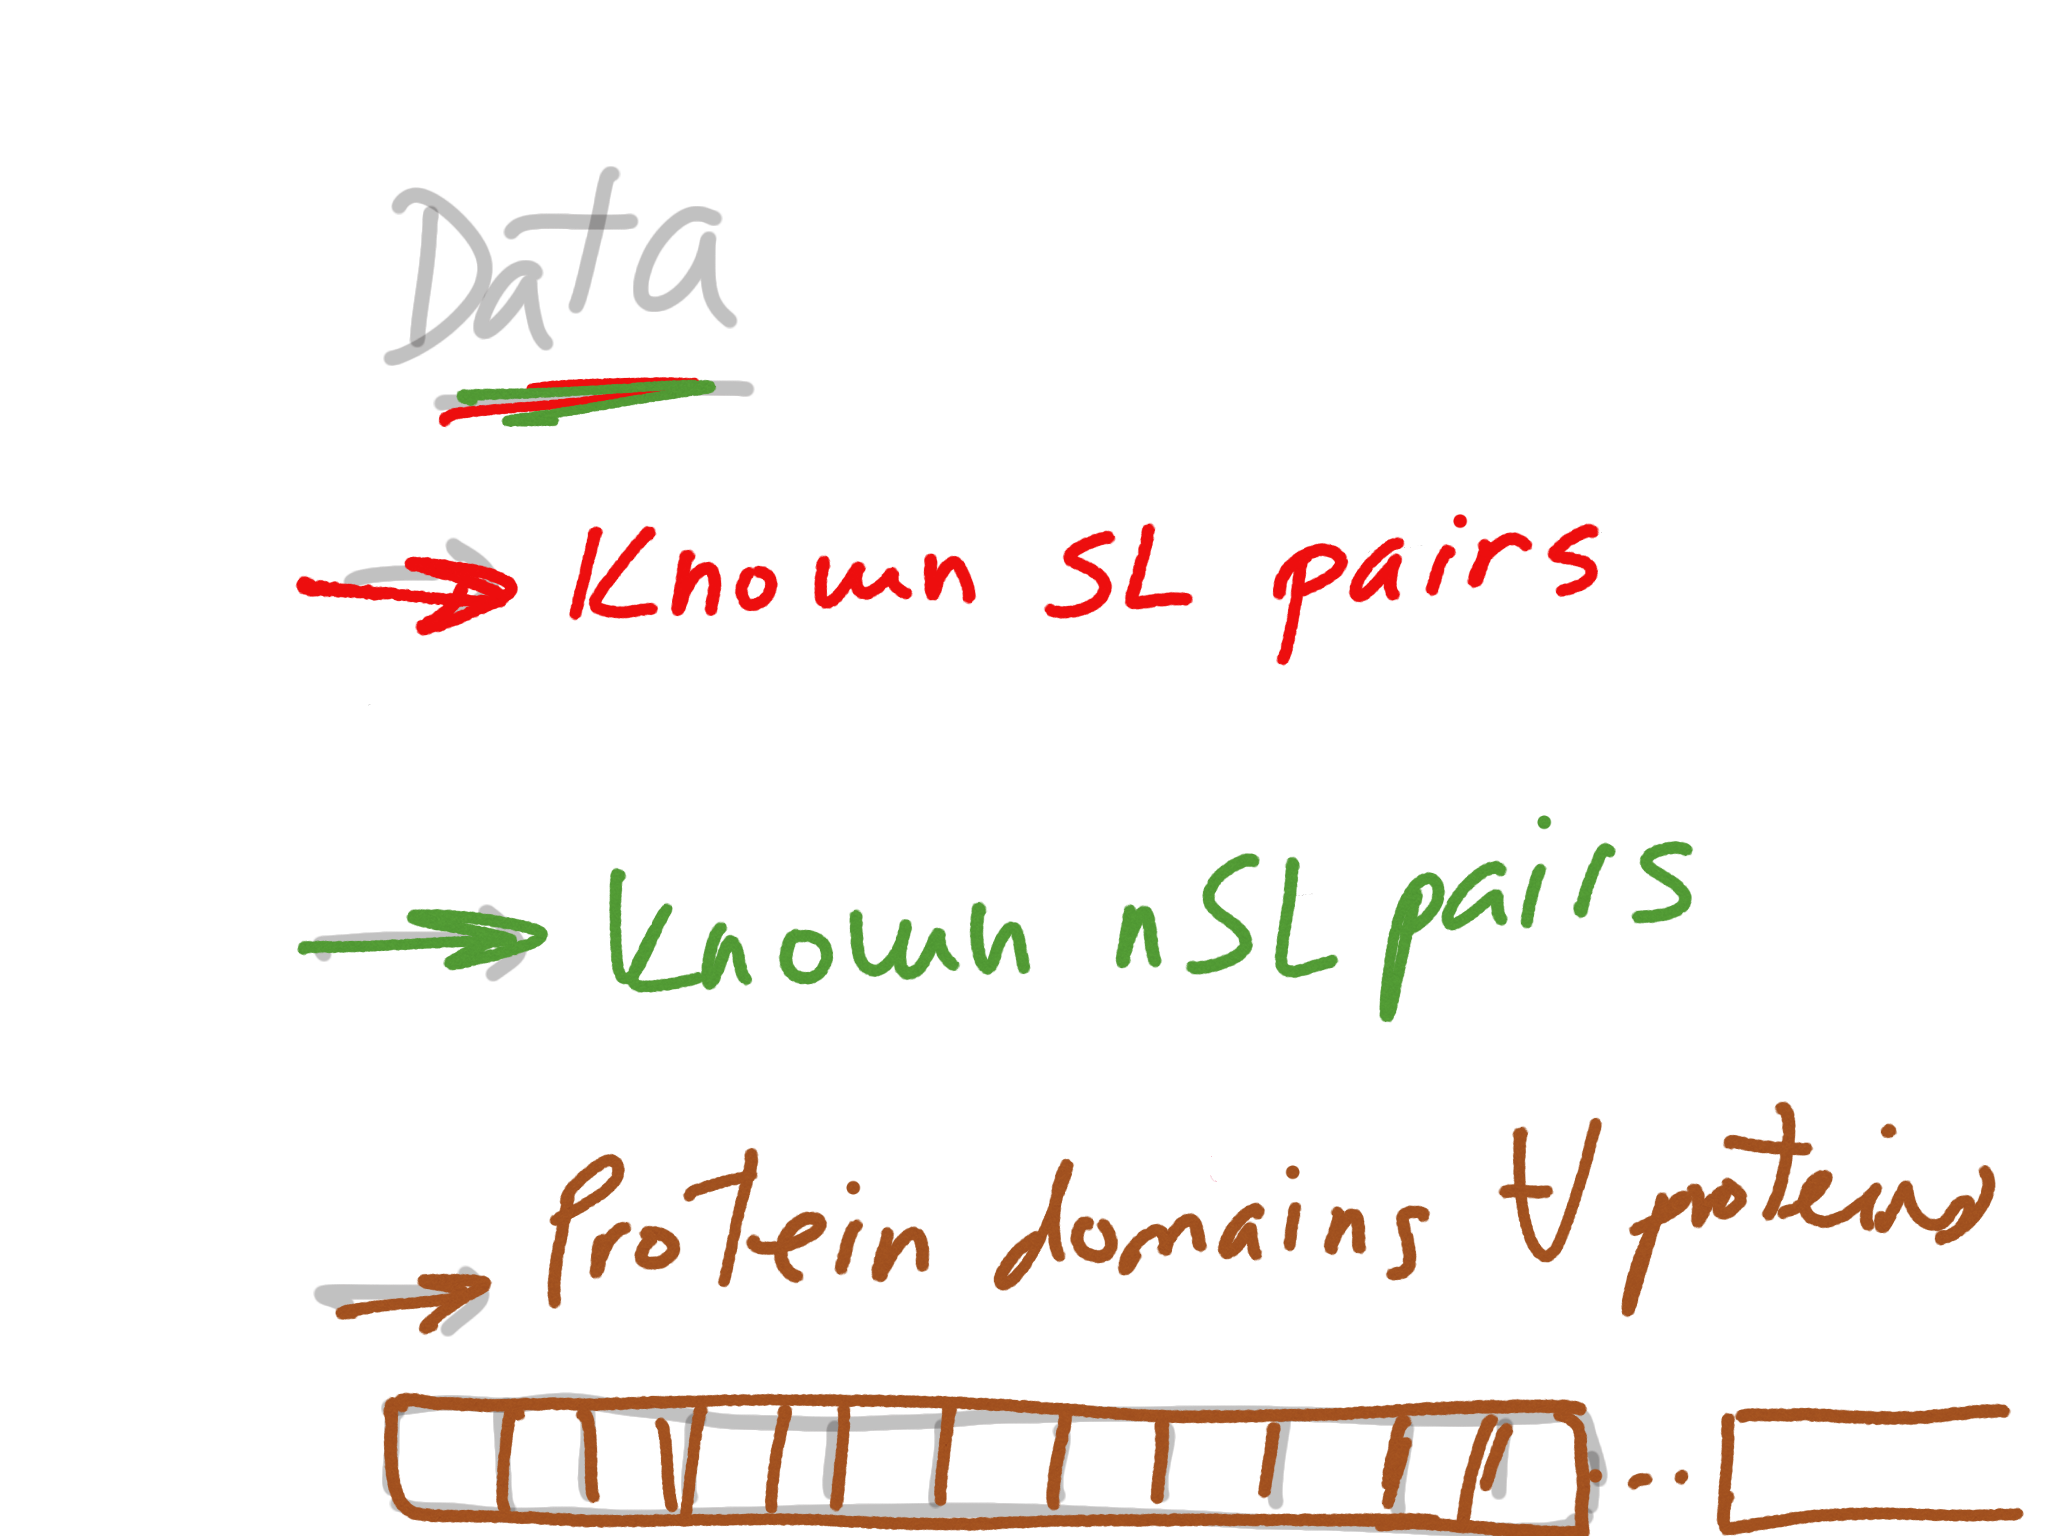 Data
Known SL pairs
Known nSL pairs
Protein domains ∀ proteins
...